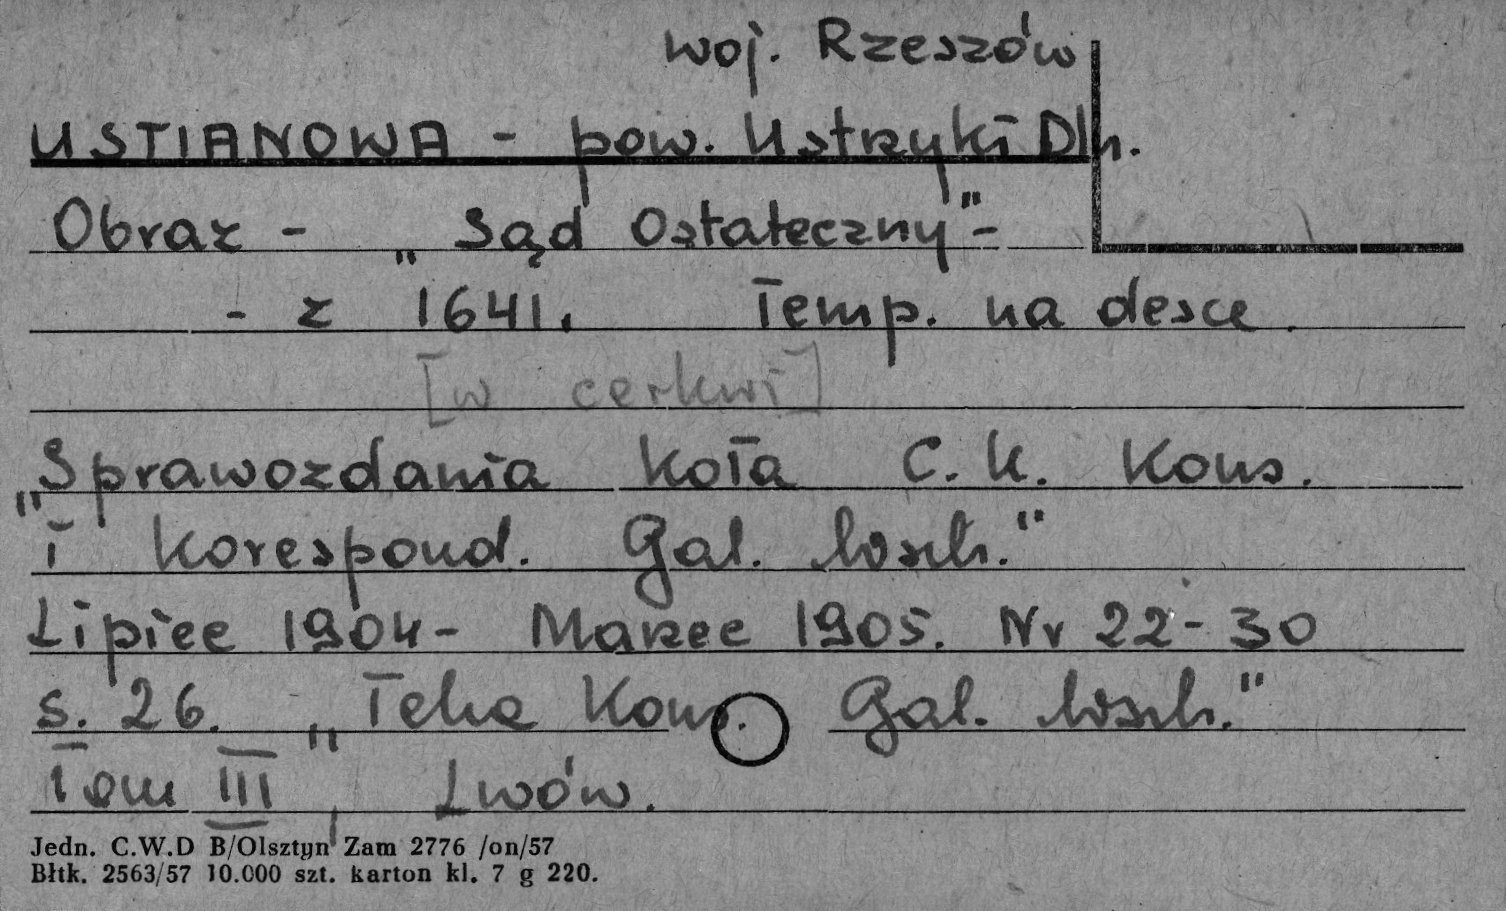 woj. Rzeszów
USTIANOWA - pow. Ustrzyki Dln.
Obraz - „Sąd Ostateczny" -
- z 1641. Temp. na desce.
[w cerkwi]
„Sprawozdania Koła C. K. Kons.
i Korespond. Gal. Wsch."
Lipiec 1904 - Marzec 1905. Nr 22 - 30
s. 26. „Teka Kons. Gal. Wsch."
Tom III, Lwów.
Jedn. C.W.D B/Olsztyn Zam 2776 /on/57
Błtk. 2563/57 10.000 szt. karton kl. 7 g 220.